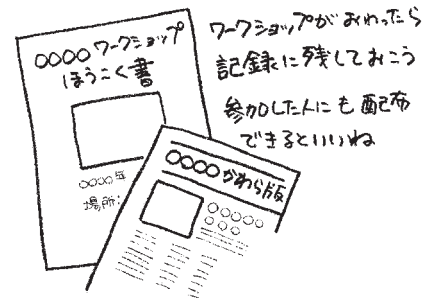 ○○○○ワークショップ
ほうこく書
○○○○年
場所:
○○○○かわら版
ワークショップがおわったら
記録に残しておこう
参加した人にも配布
できるといいね